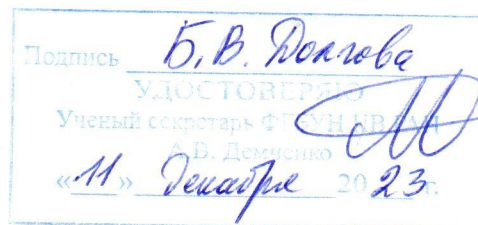 Подпись Б.В. Долгова
УДОСТОВЕРЯЮ
Ученый секретарь
А.В. Демченко
«11» Декабря 2023 г.